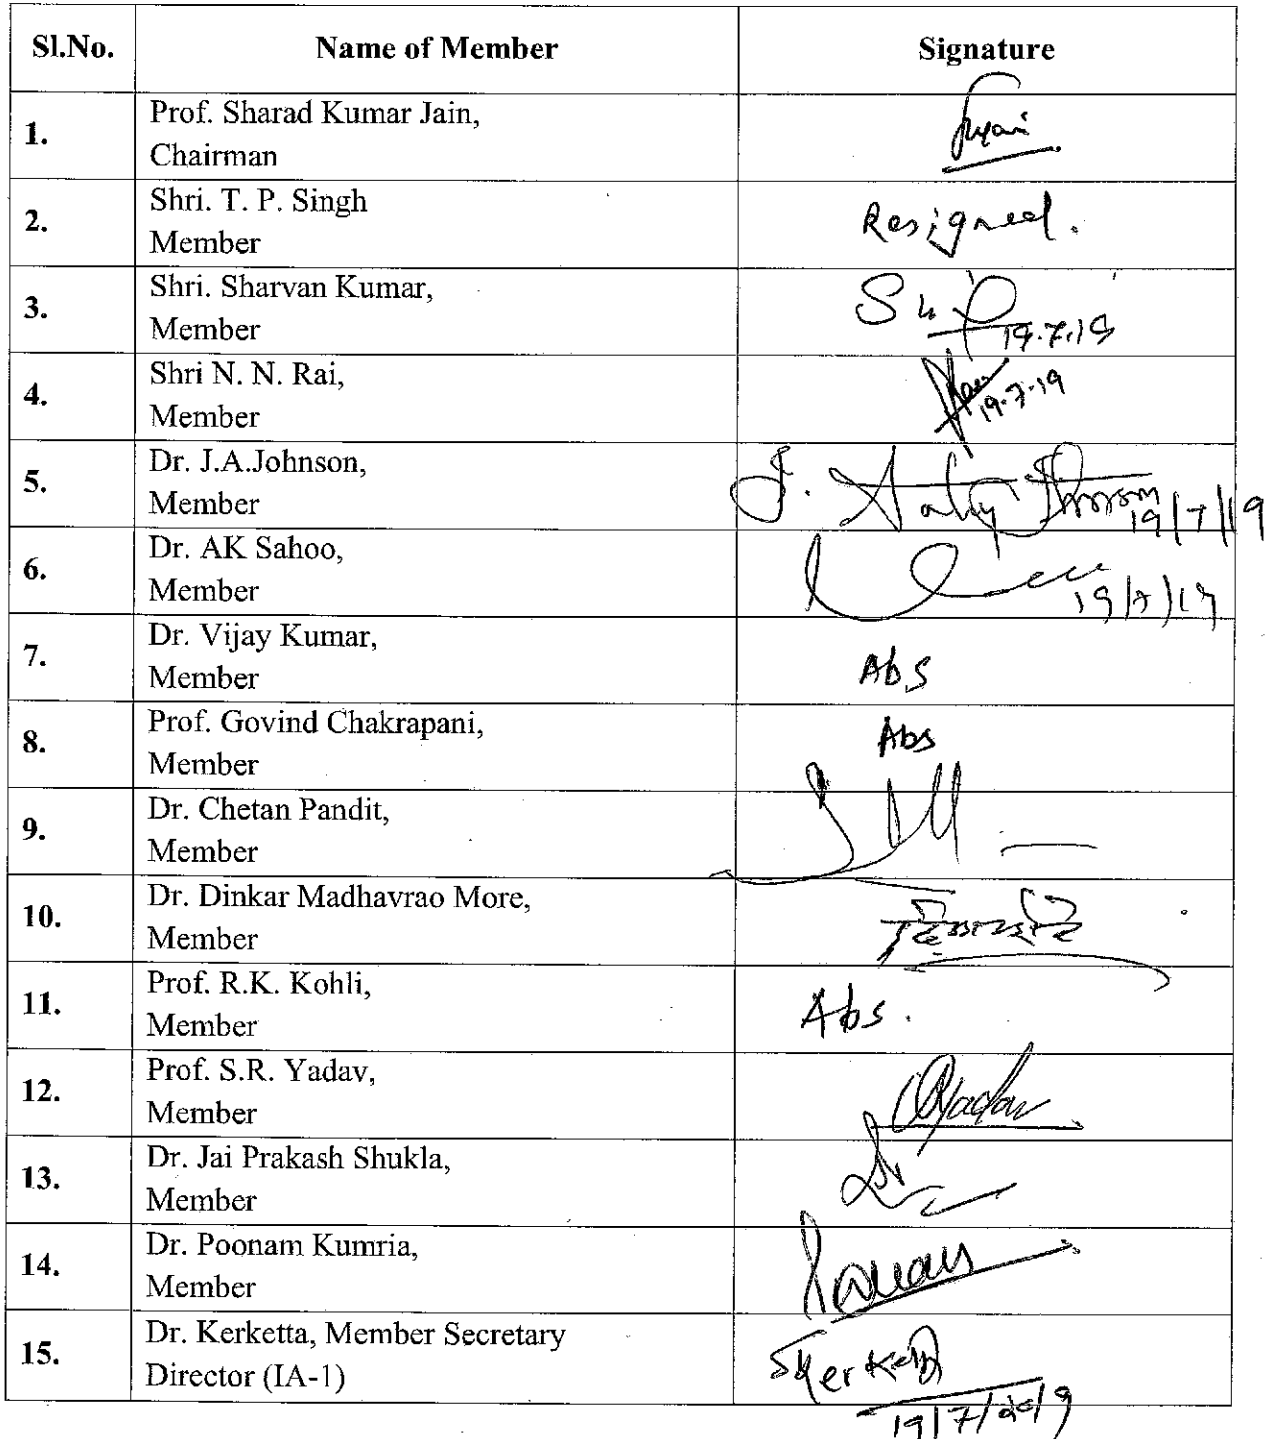 Sl.No. Name of Member Signature
1. Prof. Sharad Kumar Jain,
Chairman
2. Shri. T. P. Singh Resigned.
Member
3. Shri. Sharvan Kumar,
Member 19.7.19
4. Shri N. N. Rai,
Member 19.7.19
5. Dr. J.A.Johnson,
Member 19/7/19
6. Dr. AK Sahoo,
Member 19/7/19
7. Dr. Vijay Kumar,
Member Abs
8. Prof. Govind Chakrapani, Abs
Member
9. Dr. Chetan Pandit,
Member
10. Dr. Dinkar Madhavrao More,
Member
11. Prof. R.K. Kohli,
Member Abs.
12. Prof. S.R. Yadav,
Member Yadav
13. Dr. Jai Prakash Shukla,
Member
14. Dr. Poonam Kumria,
Member
15. Dr. Kerketta, Member Secretary
Director (IA-1)
19/7/2019